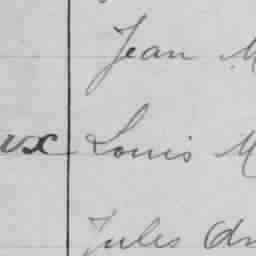 Jean M
ux Louis M
Jules An